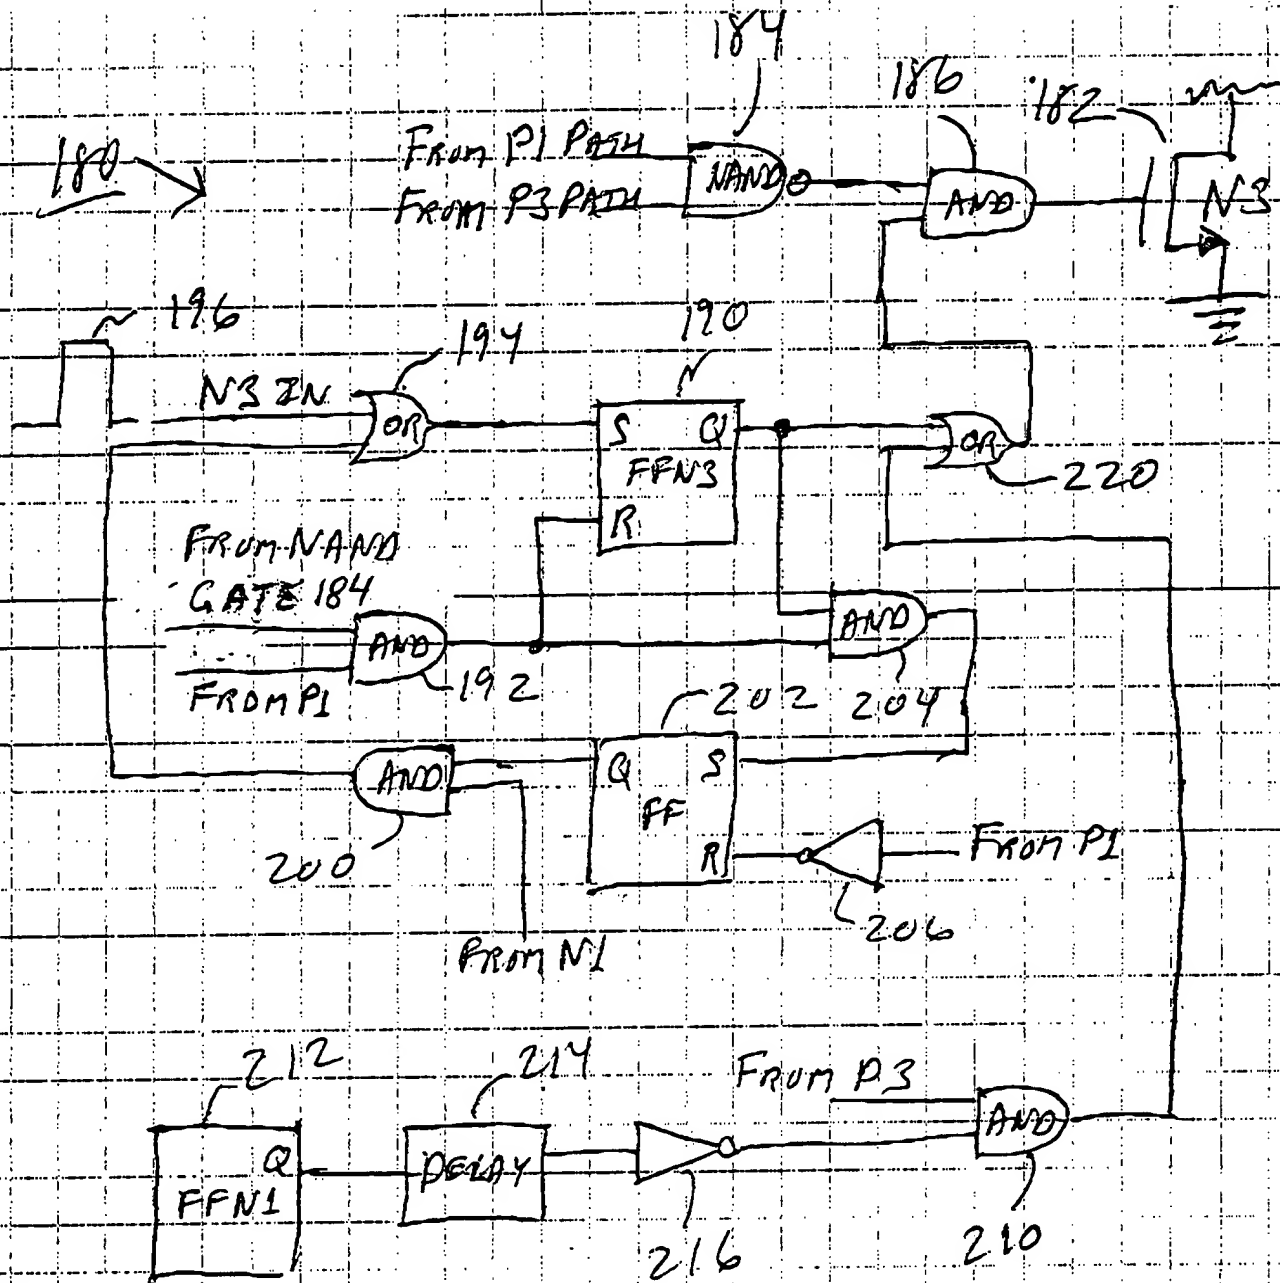 184
186
182
180
FROM P1 PATH
FROM P3 PATH
NAND
AND
N3
196
194
190
N3 IN
OR
S Q
FFN3
R
OR
220
FROM NAND
GATE 184
AND
192
FROM P1
AND
204
202
AND
Q S
FF
R
200
FROM P1
206
FROM N1
212
214
FROM P3
AND
Q
FFN1
DELAY
216
210